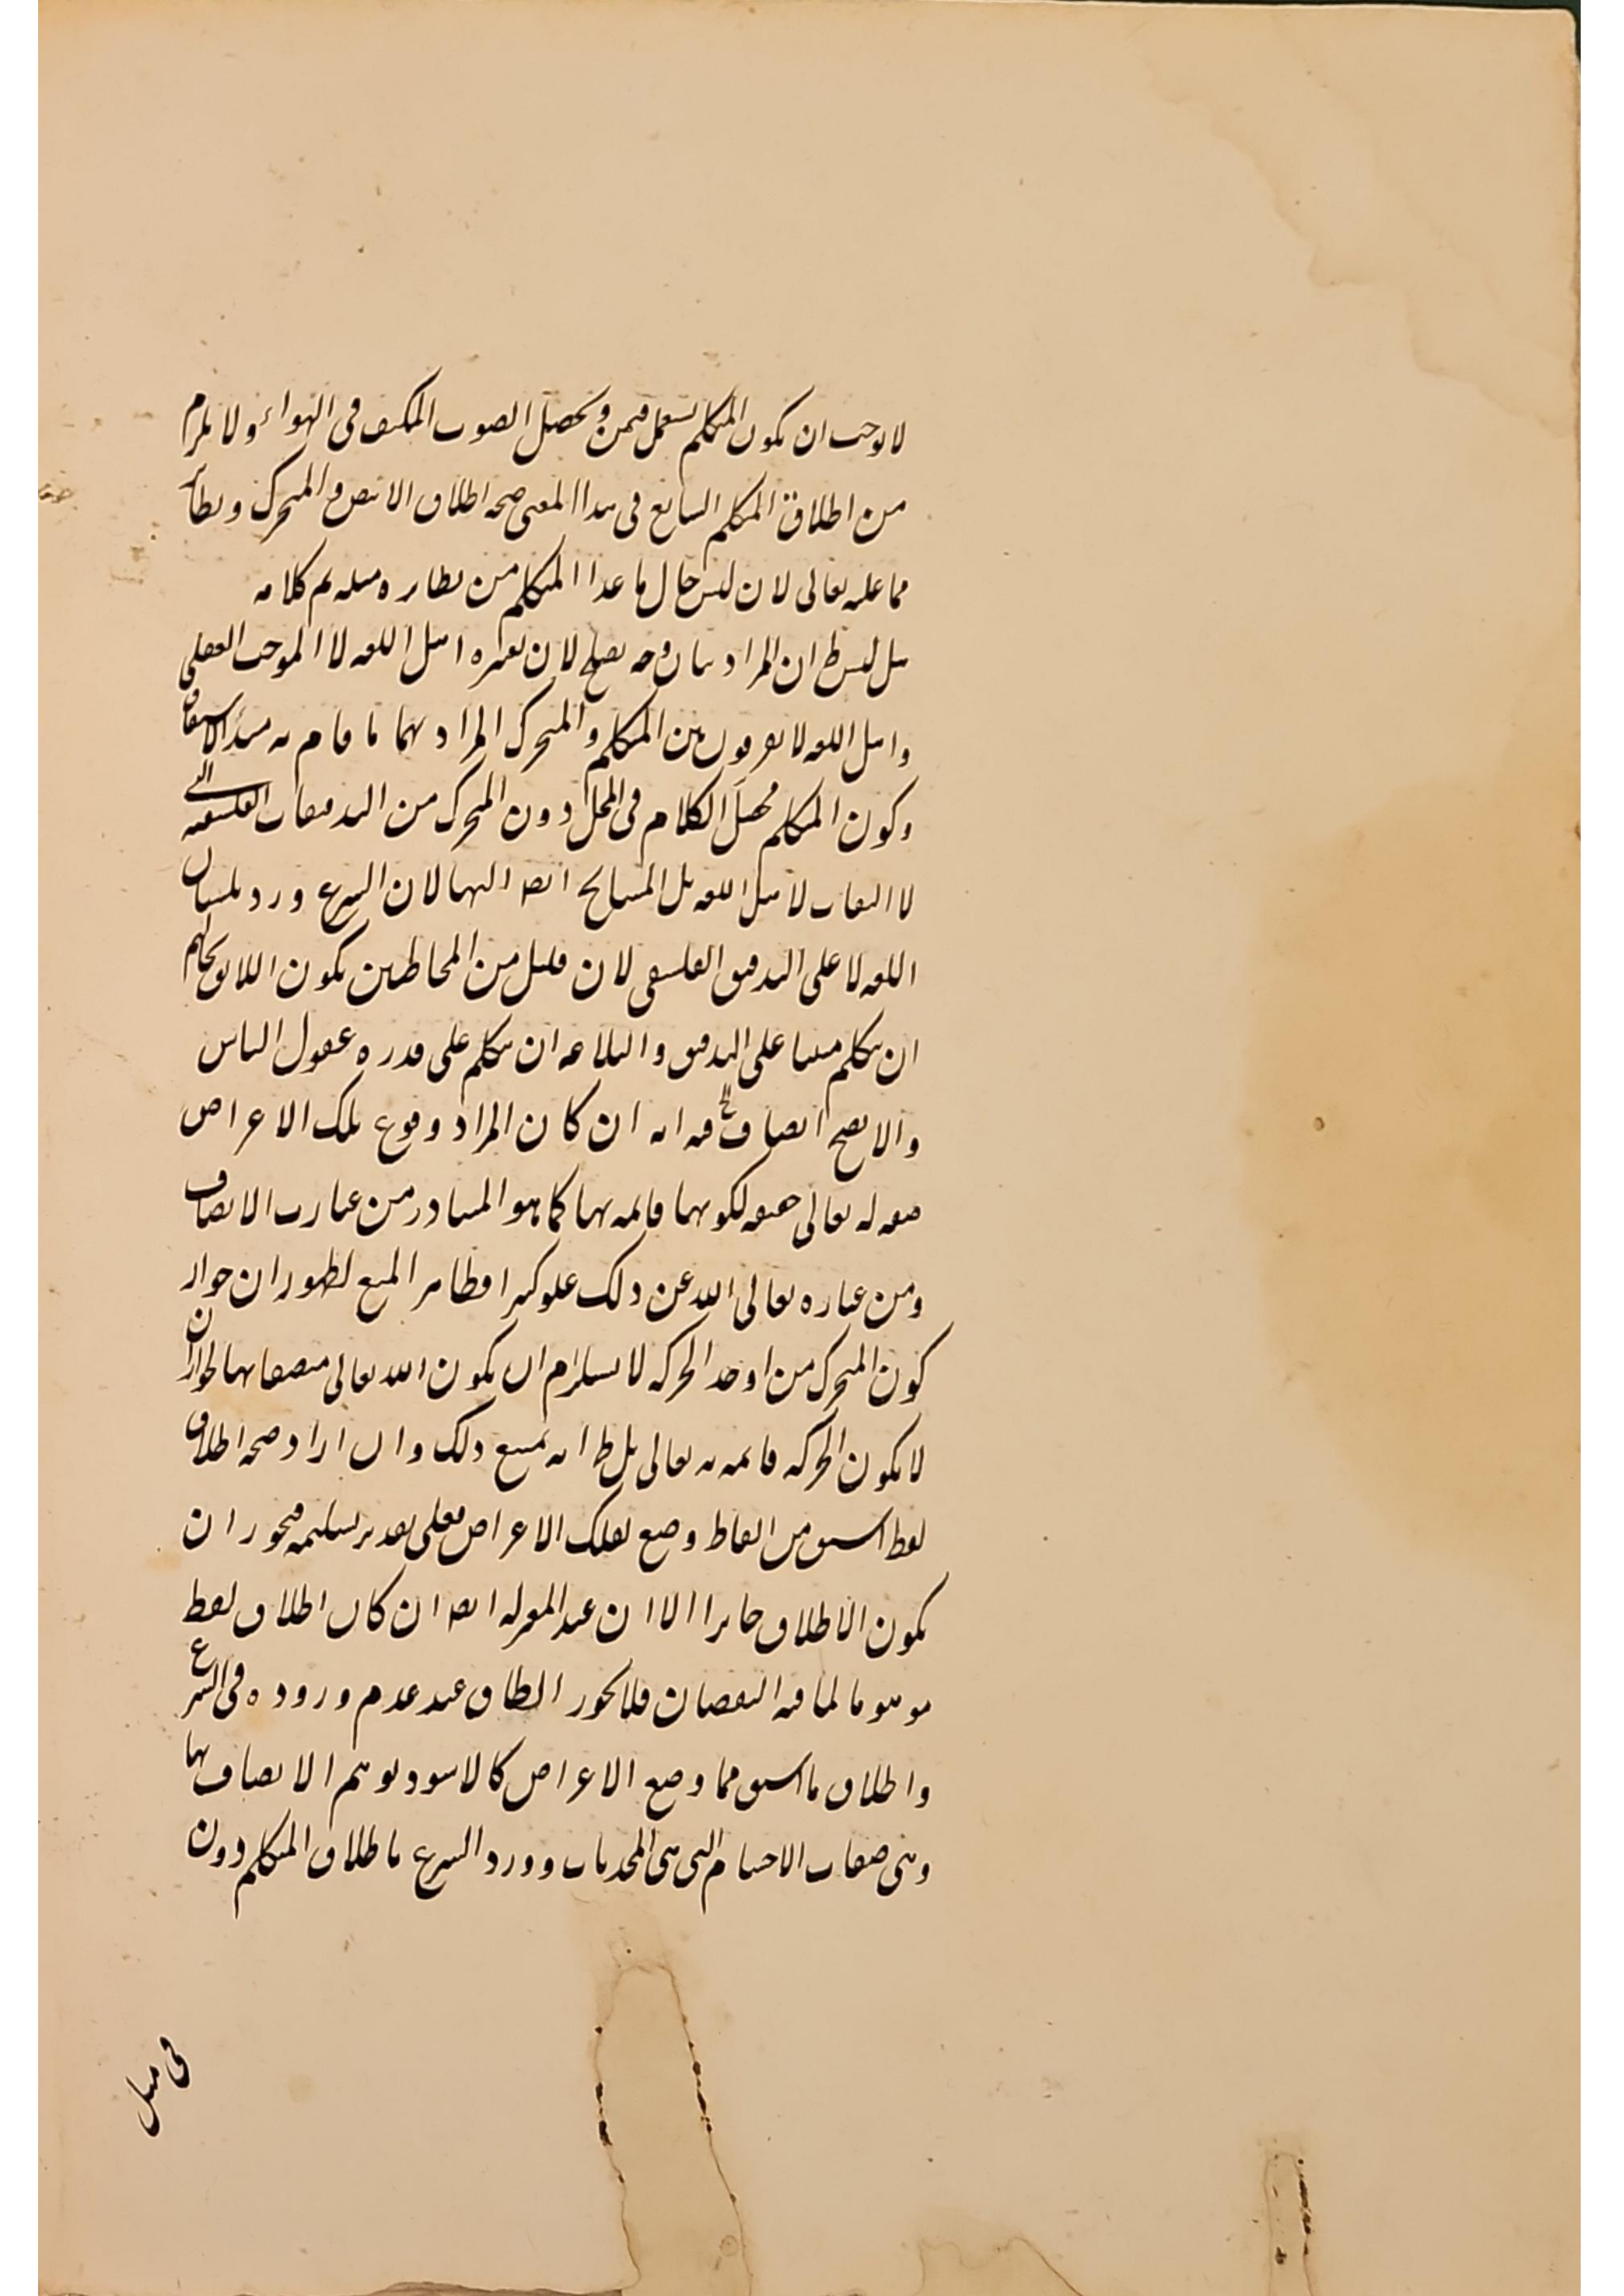 لا يوجب ان يكون المتكلم يستعمل فيمن يحصل الصوت المكيف فى الهواء ولا يلزم
من اطلاق المتكلم الشايع فى هذا المعنى صحة اطلاق الابيض و المتحرك ونظائر
مما عليه تعالى لان ليس حال ما عدا المتكلم من نظايره مثله تم كلامه
بل ليس ط ان المراد بيان وجه يصلح لان يعتبره اهل اللغه لا الموجب العقلى
واهل اللغه لا يفرقون بين المتكلم و المتحرك المراد بهما ما قام به مبدأ الاشتقاق
وكون المتكلم محصل الكلام فى المحل دون المتحرك من التدقيقات الفلسفيه التى
لا التفات لاهل اللغه بل المشايخ ايضا اليها لان الشرع ورد بلسان
اللغه لا على التدقيق الفلسفى لان قليل من المخاطبين يكون اللايق بحالهم
ان يتكلم مبنيا على التدقيق والبلاغه ان يتكلم على قدره عقول الناس
والا يصح اتصاف فيه انه ان كان المراد وقوع تلك الاعراض
صفه له تعالى حقيقه لكونهما قايمه بها كما هو المتبادر من عبارت الاتصاف
ومن عباره تعالى الله عن ذلك علو كبيرا فظاهر المنع لظهور ان جواز
كون المتحرك من اوجد الحركه لا يستلزم ان يكون الله تعالى متصفا بها لجواز ان
لا يكون الحركه قايمه به تعالى بل ط انه يمتنع ذلك وان اراد صحه اطلاق
لفظ اسبق من الفاظ وضع لفلك الاعراض فعلى تقدير تسليمه فيجوز ان
يكون الاطلاق جايزا الا ان عند المعتزله ايضا ان كان اطلاق لفظ
موهوما لما فيه النقصان فلا يجوز الطاق عند عدم وروده فى الشرع
واطلاق ما اسبق مما وضع الاعراض كالاسود يوهم الاتصاف بها
وهى صفات الاجسام التى هى المحدثات وورد الشرع باطلاق المتكلم دون